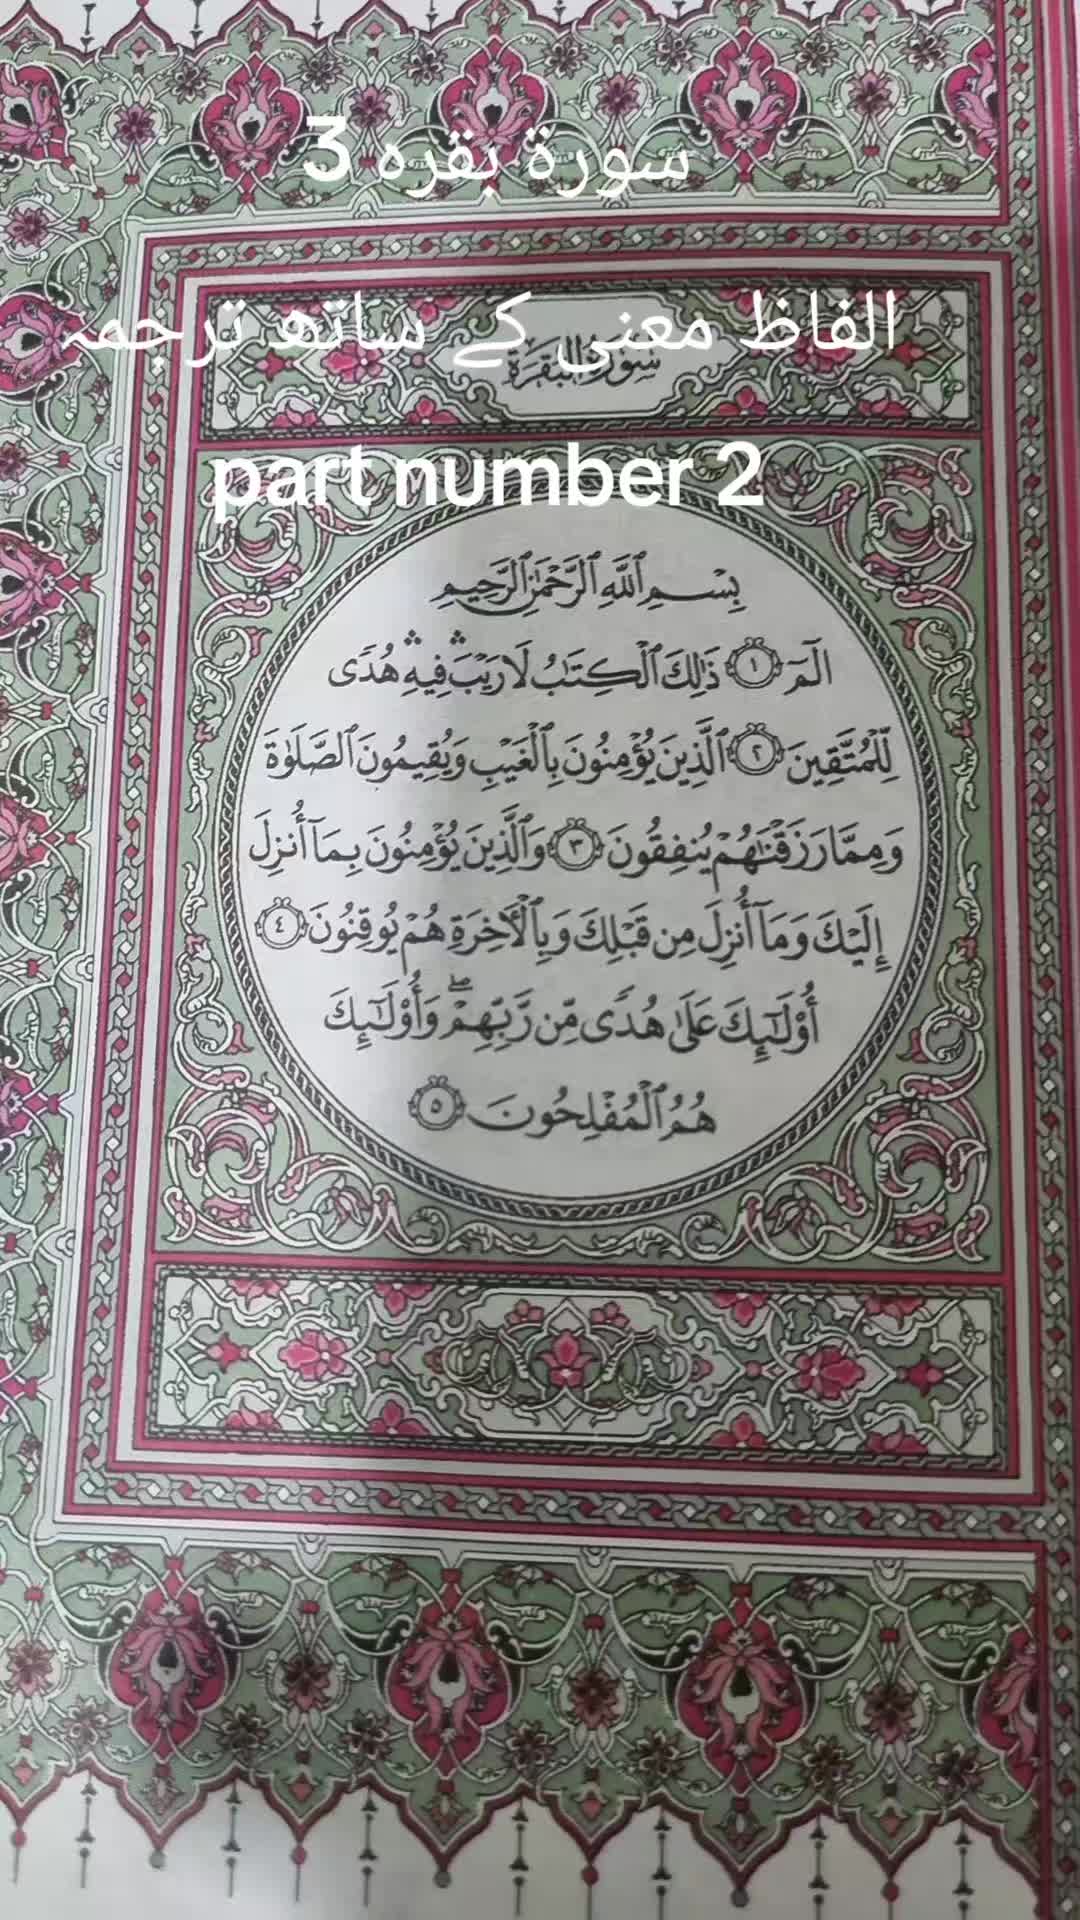 سورة بقره 3
الفاظ معنی کے ساتھ ترجمہ
سُورَةُ البَقَرَةِ
part number 2
بِسْمِ ٱللَّهِ ٱلرَّحْمَٰنِ ٱلرَّحِيمِ
الٓمٓ ١ ذَٰلِكَ ٱلْكِتَٰبُ لَا رَيْبَ ۛ فِيهِ ۛ هُدًى
لِّلْمُتَّقِينَ ٢ ٱلَّذِينَ يُؤْمِنُونَ بِٱلْغَيْبِ وَيُقِيمُونَ ٱلصَّلَوٰةَ
وَمِمَّا رَزَقْنَٰهُمْ يُنفِقُونَ ٣ وَٱلَّذِينَ يُؤْمِنُونَ بِمَآ أُنزِلَ
إِلَيْكَ وَمَآ أُنزِلَ مِن قَبْلِكَ وَبِٱلْءَاخِرَةِ هُمْ يُوقِنُونَ ٤
أُو۟لَٰٓئِكَ عَلَىٰ هُدًى مِّن رَّبِّهِمْ ۖ وَأُو۟لَٰٓئِكَ
هُمُ ٱلْمُفْلِحُونَ ٥